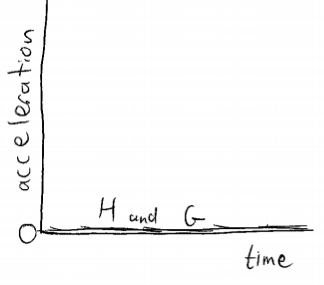 acceleration
H and G
0
time